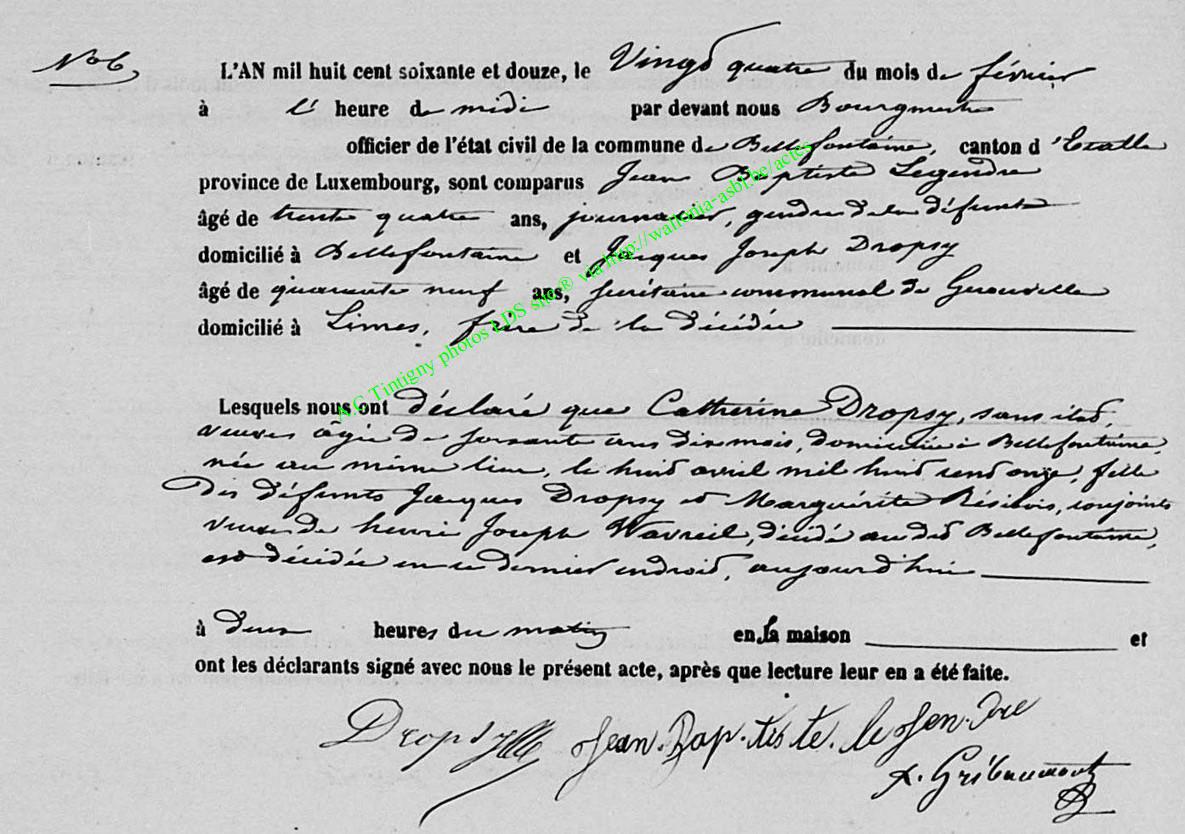 No 6
L'AN mil huit cent soixante et douze, le Vingt quatre du mois de février
à l' heure de midi par devant nous Bourgmestre
officier de l'état civil de la commune de Bellefontaine, canton d'Etalle
province de Luxembourg, sont comparus Jean Baptiste Legendre
âgé de trente quatre ans, journalier, gendre de la défunte
domicilié à Bellefontaine et Jacques Joseph Dropsy
âgé de quarante neuf ans, secrétaire communal de Gerouville
domicilié à Limes, frère de la décédée
A.C Tintigny photos LDS site® via http://wallonia-asbl.be/actes
Lesquels nous ont déclaré que Catherine Dropsy, sans état,
veuve âgée de soixante ans dix mois, domiciliée à Bellefontaine,
née au même lieu, le huit avril mil huit cent onze, fille
des défunts Jacques Dropsy et Marguérite conjoints
veuve de henri Joseph Wavreil, décédé au dit Bellefontaine,
est décédée en ce dernier endroit, aujourd'hui
à deux heures du matin en la maison et
ont les déclarants signé avec nous le présent acte, après que lecture leur en a été faite.
Dropsy Jean Baptiste le Jendre
A. Gribaumont